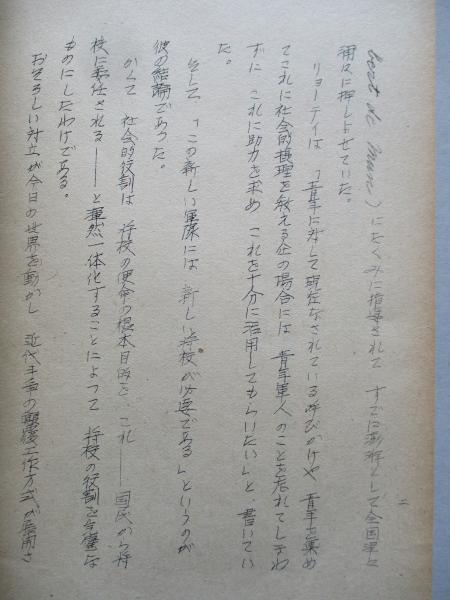 bert de Mun）にたくみに指導されて すでに澎湃として全国津々
浦々に押しよせていた。
リョーテイは 「青年に対して現在なされている呼びかけや 青年を集め
てこれに社会的摂理を教える企の場合には 青年軍人のことを忘れてしまわ
ずに これに助力を求め これを十分に活用してもらいたい」と、書いてい
た。
そして 「この新しい軍隊には 新しい将校が必要である」というのが
彼の結論であった。
かくて 社会的役割は 将校の使命の根本目的を、これ——国民から将
校に委任される——と渾然一体化することによって 将校の役割を完璧な
ものにしたわけである。
おそろしい対立が今日の世界を動かし 近代戦争の 工作方式が展開さ
二